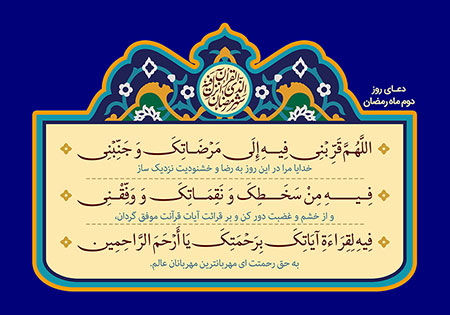 شهر رمضان الذی انزل فیه القرآن
دعـای روز
دوم ماه رمضان
اللَّهُمَّ قَرِّبْنِی فِیهِ إِلَی مَرْضَاتِکَ وَ جَنِّبْنِی
خدایا مرا در این روز به رضا و خشنودیت نزدیک ساز
فِیهِ مِنْ سَخَطِکَ وَ نَقِمَاتِکَ وَ وَفِّقْنِی
و از خشم و غضبت دور کن و بر قرائت آیات قرآنت موفق گردان،
فِیهِ لِقِرَاءَةِ آیَاتِکَ بِرَحْمَتِکَ یَا أَرْحَمَ الرَّاحِمِین
به حق رحمتت ای مهربانترین مهربانان عالم.